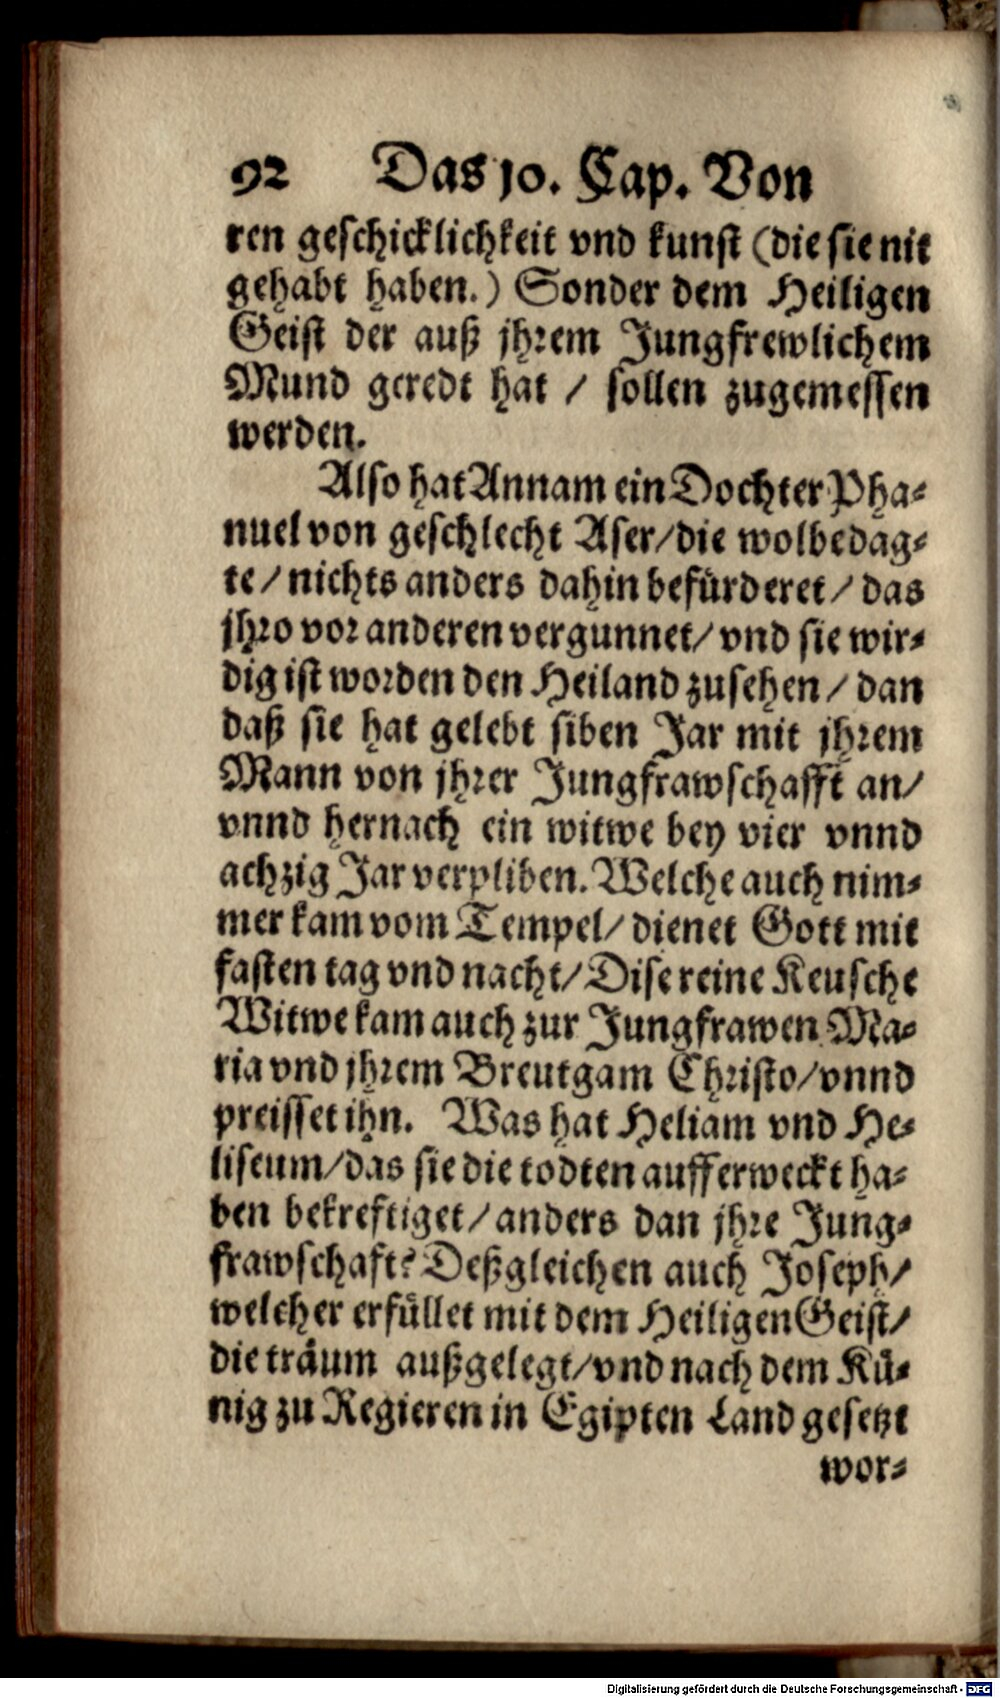 92 Das 10. Cap. Von
ren geschicklichkeit vnd kunst (die sie nit
gehabt haben.) Sonder dem Heiligen
Geist der auß jhrem Jungfrewlichem
Mund geredt hat / sollen zugemessen
werden.
Also hat Annam ein Dochter Pha-
nuel von geschlecht Aser/die wolbedag-
te/nichts anders dahin befürderet/das
jhro vor anderen vergunnet/vnd sie wir-
dig ist worden den Heiland zusehen/dan
daß sie hat gelebt siben Jar mit jhrem
Mann von jhrer Jungfrawschafft an/
vnnd hernach ein witwe bey vier vnnd
achzig Jar verpliben. Welche auch nim-
mer kam vom Tempel/dienet Gott mit
fasten tag vnd nacht/Dise reine Keusche
Witwe kam auch zur Jungfrawen Ma-
ria vnd jhrem Breutgam Christo/vnnd
preisset ihn. Was hat Heliam vnd He-
liseum/das sie die todten aufferweckt ha-
ben bekreftiget/anders dan jhre Jung-
frawschaft? Deßgleichen auch Joseph/
welcher erfüllet mit dem Heiligen Geist/
die träum außgelegt/vnd nach dem Kü-
nig zu Regieren in Egipten Land gesetzt
wor-
Digitalisierung gefördert durch die Deutsche Forschungsgemeinschaft - DFG